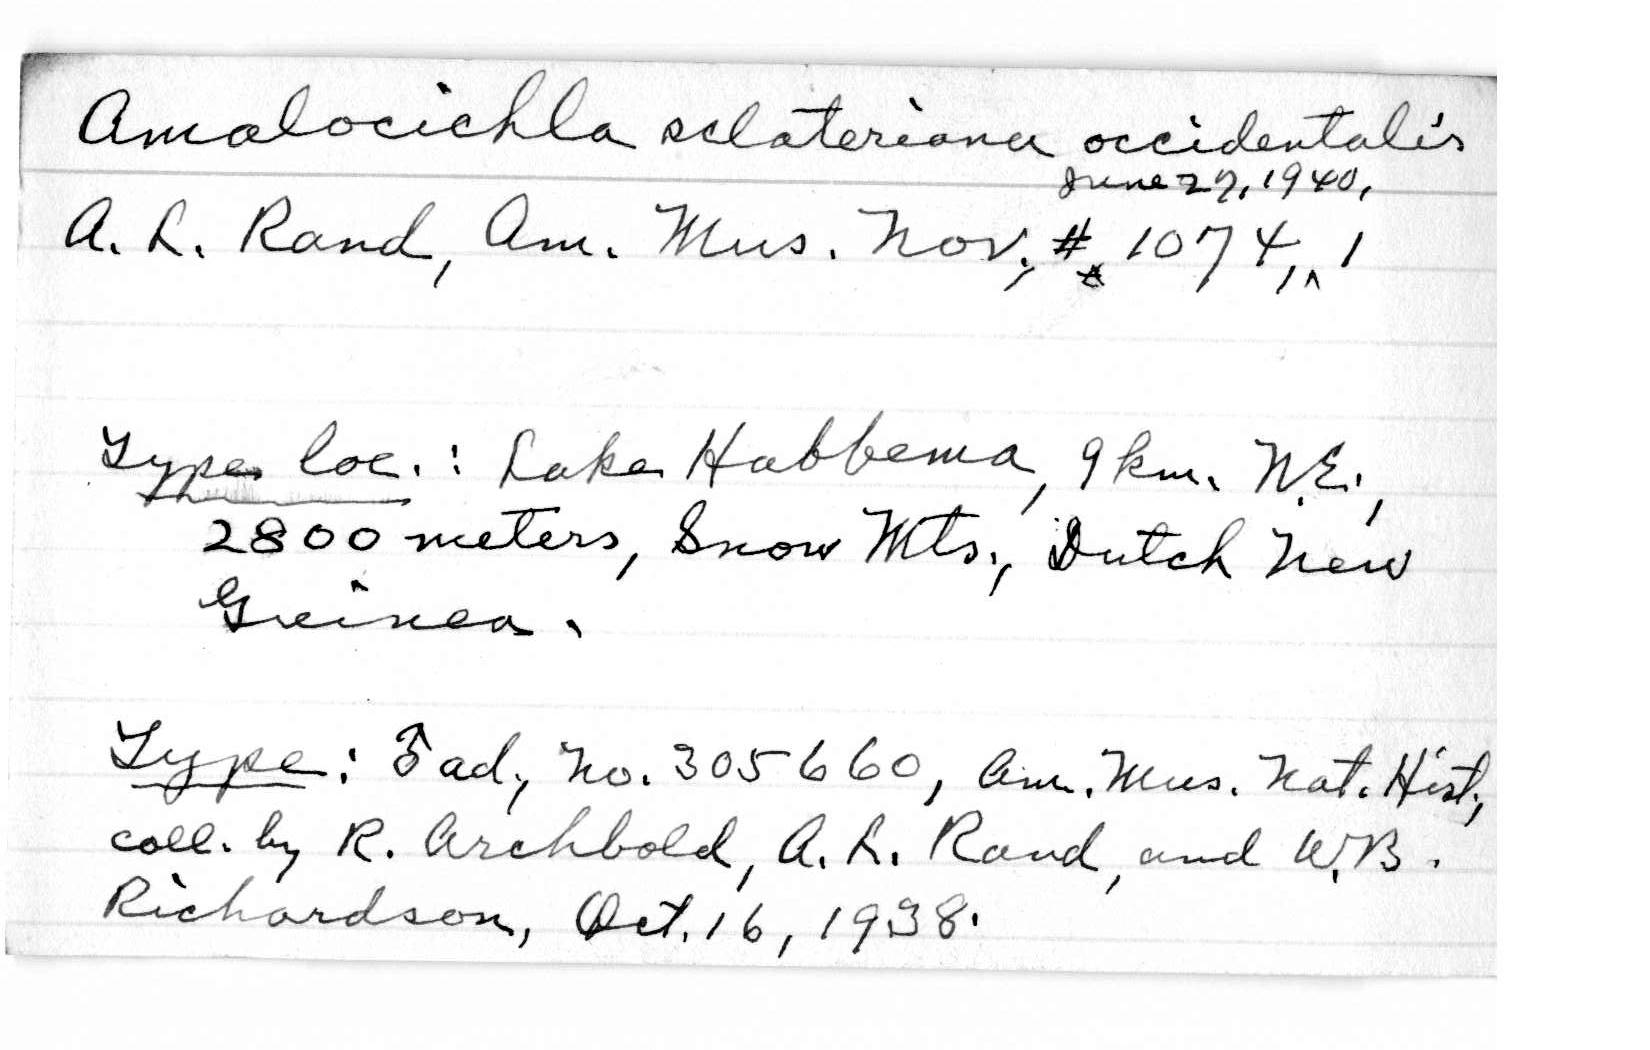 Amalocichla sclateriana occidentalis
June 27, 1940,
A. L. Rand, Am. Mus. Nov., # 1074,^ 1
Type loc.: Lake Habbema, 9 km. N.E.,
2800 meters, Snow Mts., Dutch New
Guinea.
Type: ♂ ad., No. 305660, Am. Mus. Nat. Hist.,
coll. by R. Archbold, A. L. Rand, and W.B.
Richardson, Oct. 16, 1938.